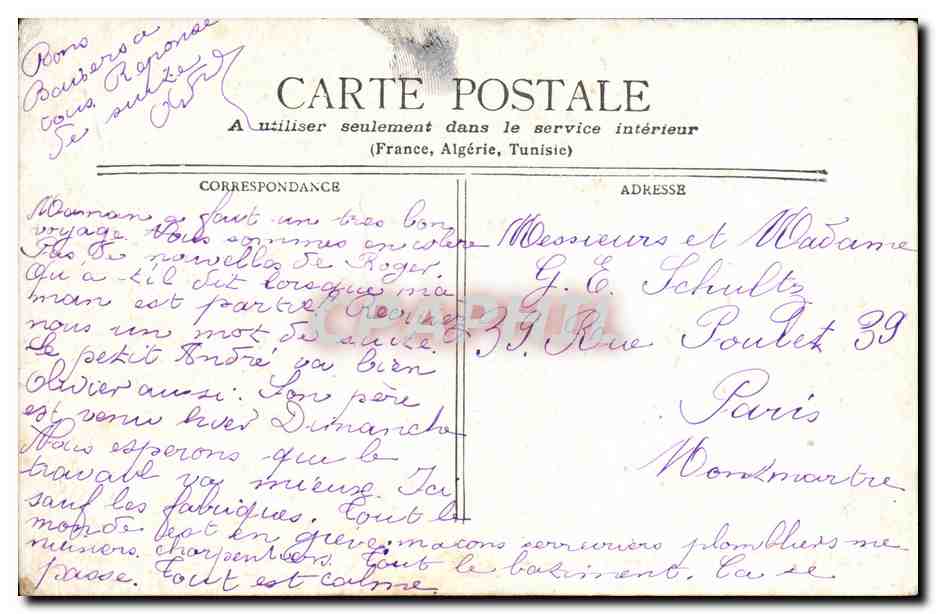 Bons
Baisers a
vous. Reponse
de suize
CARTE POSTALE
A utiliser seulement dans le service intérieur
(France, Algérie, Tunisie)
CORRESPONDANCE
ADRESSE
Maman a fait un très bon
voyage. Nous sommes en colère
Pas de nouvelles de Roger.
Qu'a-t-il dit lorsque ma
man est partie
nous un mot de suize.
Le petit André va bien
Olivier aussi. Son père
est venu hier Dimanche
Nous esperons que le
travail va mieux. Ici
sauf les fabriques. Tout le
monde est en greve. macons serruriers plombliers me
nuisiers, charpentiers. Tout le batiment. Ca se
passe. Tout est calme.
Messieurs et Madame
G. E. Schultz
39. Rue Poulet 39
Paris
Montmartre
CPARAMA